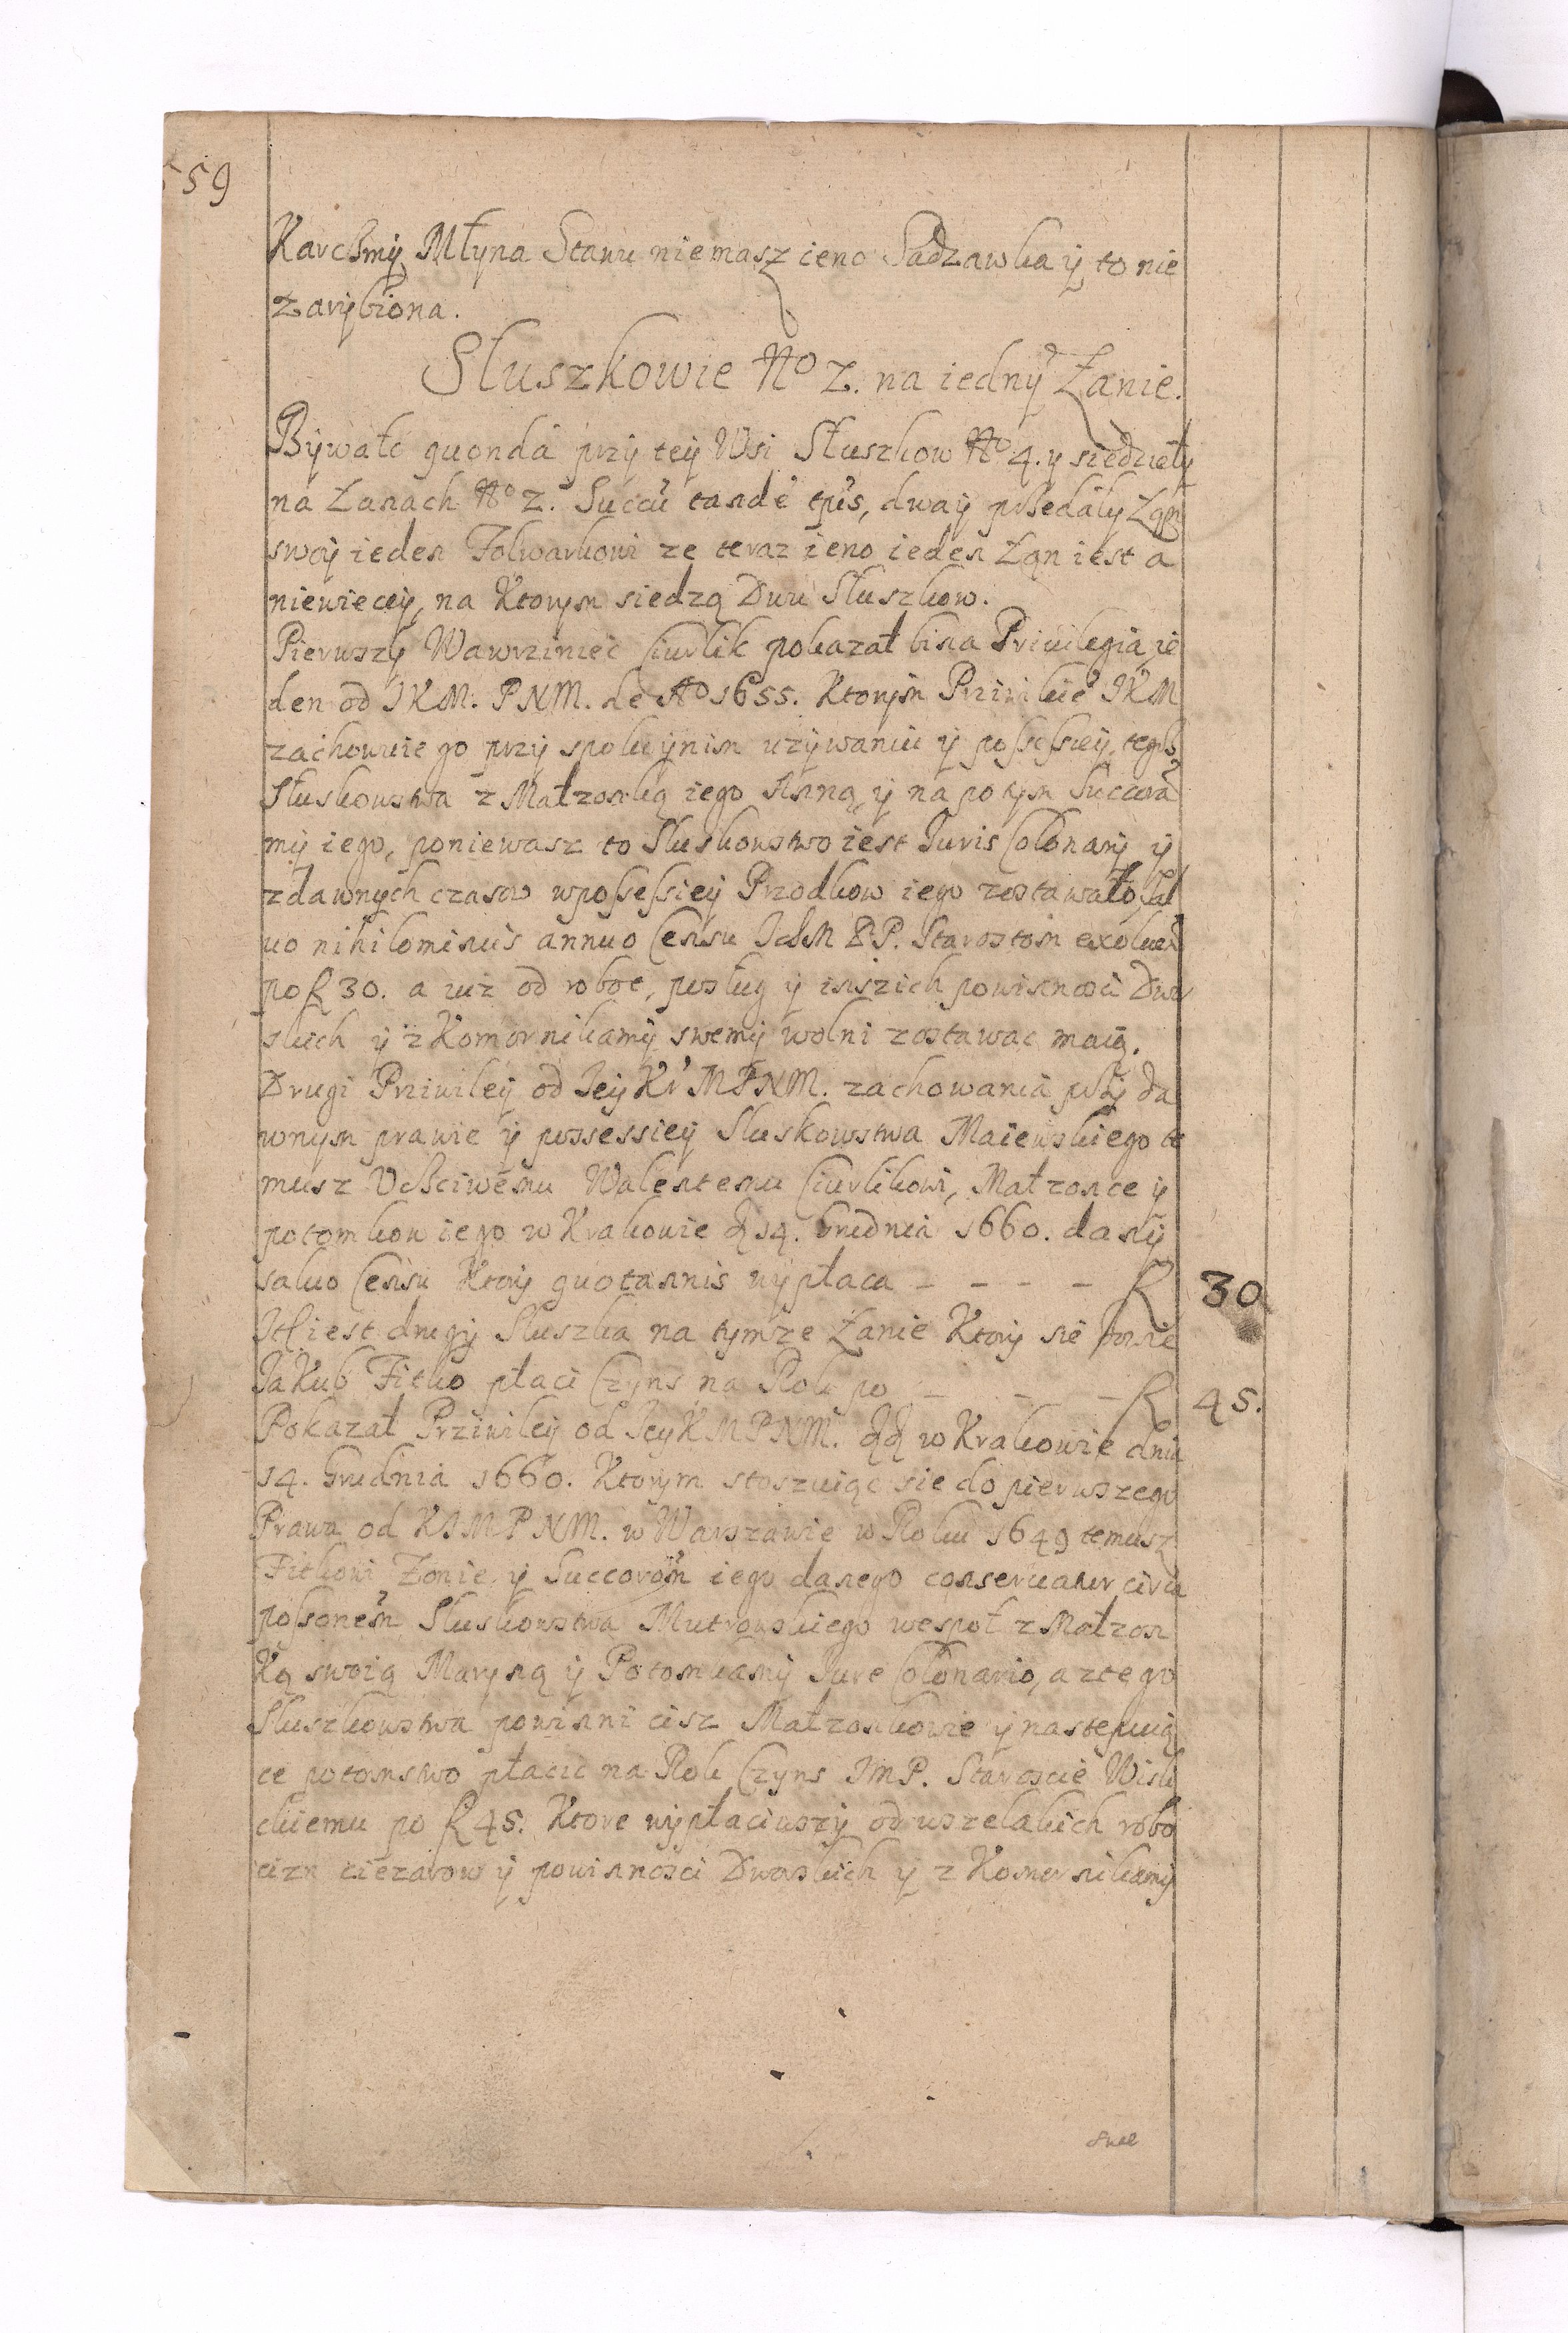 559
Karczmy Młyna Stawu niemasz ieno Sadzawka y to nie
zarybiona.
Słuszkowie No 2. na iedny Łanie.
Bywało quondã przy tey Wsi Słuszkow No 4. y siedziely
na Łanach No 2. Succũ tandẽ tp̃is, dway przedaly Łan
swoy ieden Folwarkowi ze teraz ieno ieden Łan iest a
niewiecey, na Ktorym siedzą Dwu Słuszkow.
Pierwszy Wawrziniec Ciurlik pokazał bina Privilegia, ie
den od JKM: PNM. de Ao 1655. Ktorym Prziwileie JKM
zachowuie go przy spokoynim uzywaniu y possessiey, tego
Słuskowstwa z Małzonką iego Anną, y na potym Succora
my iego, poniewasz to Sluskowstwo iest Juris Colonarij y
zdawnych czasow wpossessiey Przodkow iego zostawało, Sal
uo nihilominus annuo Censu P. Starostom
po f 30. a iuz od robot, posług y inszich powinnosci Dwor
skich y z Komornikamy swemy wolni zostawac maią.
Drugi Priwiley od Jey Kr MPNM. zachowania przy da
wnym prawie y possessiey Sluskowstwa Maiewskiego te
musz Vcściwemu Walentemu Ciurlikowi, Małzonce y
potomkow iego w Krakowie d 14. Grudnia 1660. dany
saluo Censu Ktory quotannis wypłaca - - - - f 30
It iest drugy Sluszka na tymze Łanie Ktory sie zowie
Jakub Fitko płaci Czyns na Rok po - - - f 45.
Pokazał Prziwiley od Jey KMPNM. w Krakowie dnia
14. Grudnia 1660. Ktorym stoszuiąc sie do pierwszego
Prawa od KJMPNM. w Warszawie w Roku 1649 temusz
Fitkowi Zonie y Succorom iego danego conseruatur circa
possonem Sluskowstwa Mutrowskiego wespoł z Małzon
Ką swoią Maryną y Potomkamy Jure Colonario, a ztego
Sluszkowstwa powinni cisz Małzonkowie y nastepuią
ce potomstwo płacic na Rok Czyns JMP. Staroscie Wisli
ckiemu po f 45. Ktore wypłaciwszy od wszelakich robo
cizn ciezarow y powinnosci Dworskich y z Komornikamy